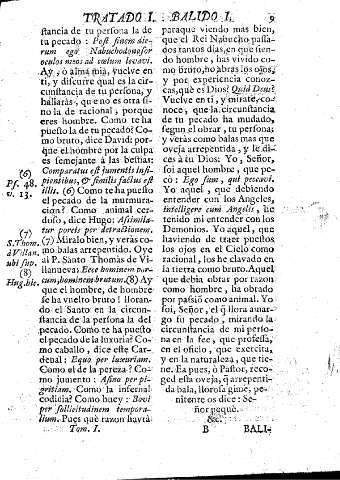 TRATADO I. BALIDO I. 9
stancia de tu persona la de
tu pecado : Post finem die-
rum ego Nabuchodonosor
oculos meos ad cœlum levavi.
Ay, ò alma mia, vuelve en
ti, y discurre qual es la cir-
cunstancia de tu persona, y
hallaràs, que no es otra si-
no la de racional, porque
eres hombre. Como te ha
puesto la de tu pecado? Co-
mo bruto, dice David: por-
que el hombre por la culpa
es semejante à las bestias:
(6)
Ps. 48.
v. 13.
Comparatus est jumentis insi-
pientibus, & similis factus est
illis. (6) Como te ha puesto
el pecado de la murmura-
cion? Como animal cer-
doso, dice Hugo: Assimila-
tur porcis per detractionem.
(7)
S. Thom.
à Villan.
ubi sup.
(7) Miralo bien, y veràs co-
mo balas arrepentido. Oye
al P. Santo Thomàs de Vi-
llanueva: Ecce hominem por-
cum, hominem brutum. (8) Ay
(8)
Hug. hic.
que el hombre, de hombre
se ha vuelto bruto! lloran-
do el Santo en la circun-
stancia de la persona la del
pecado. Como te ha puesto
el pecado de la luxuria? Co-
mo caballo, dice este Car-
denal: Equo per luxuriam.
Como el de la pereza? Co-
mo jumento : Asino per pi-
gritiam. Como la infernal
codicia? Como buey : Bovi
per sollicitudinem tempora-
lium. Pues què razon havrà
Tom. I.
paraque viendo mas bien,
que el Rei Nabucho passa-
dos tantos dias, en que sien-
do hombre, has vivido co-
mo bruto, no abras los ojos,
y por experiencia conoz-
cas, què es Dios? Quid Deus?
Vuelve en ti, y mirate, co-
noce, que la circunstancia
de tu pecado ha mudado,
segun el obrar, tu persona;
y veràs como balas mas que
oveja arrepentida, y le di-
ces à tu Dios: Yo, Señor,
soi aquel hombre, que pe-
cò: Ego sum, qui peccavi.
Yo aquel, que debiendo
entender con los Angeles,
intelligere cum Angelis, he
tenido mi entender con los
Demonios. Yo aquel, que
haviendo de traer puestos
los ojos en el Cielo como
racional, los he clavado en
la tierra como bruto. Aquel
que debia obrar por razon
como hombre, ha obrado
por passiõ como animal. Yo
soi, Señor, el q̃ llora amar-
go su pecado, mirando la
circunstancia de mi perso-
na en la fee, que professa,
en el oficio, que exercita,
y en la naturaleza, que tie-
ne. Ea pues, ò Pastor, reco-
ged esta oveja, q̃ arrepenti-
da bala, llorosa gime, pe-
nitente os dice : Se-
ñor pequè.
&c.
B BALI-